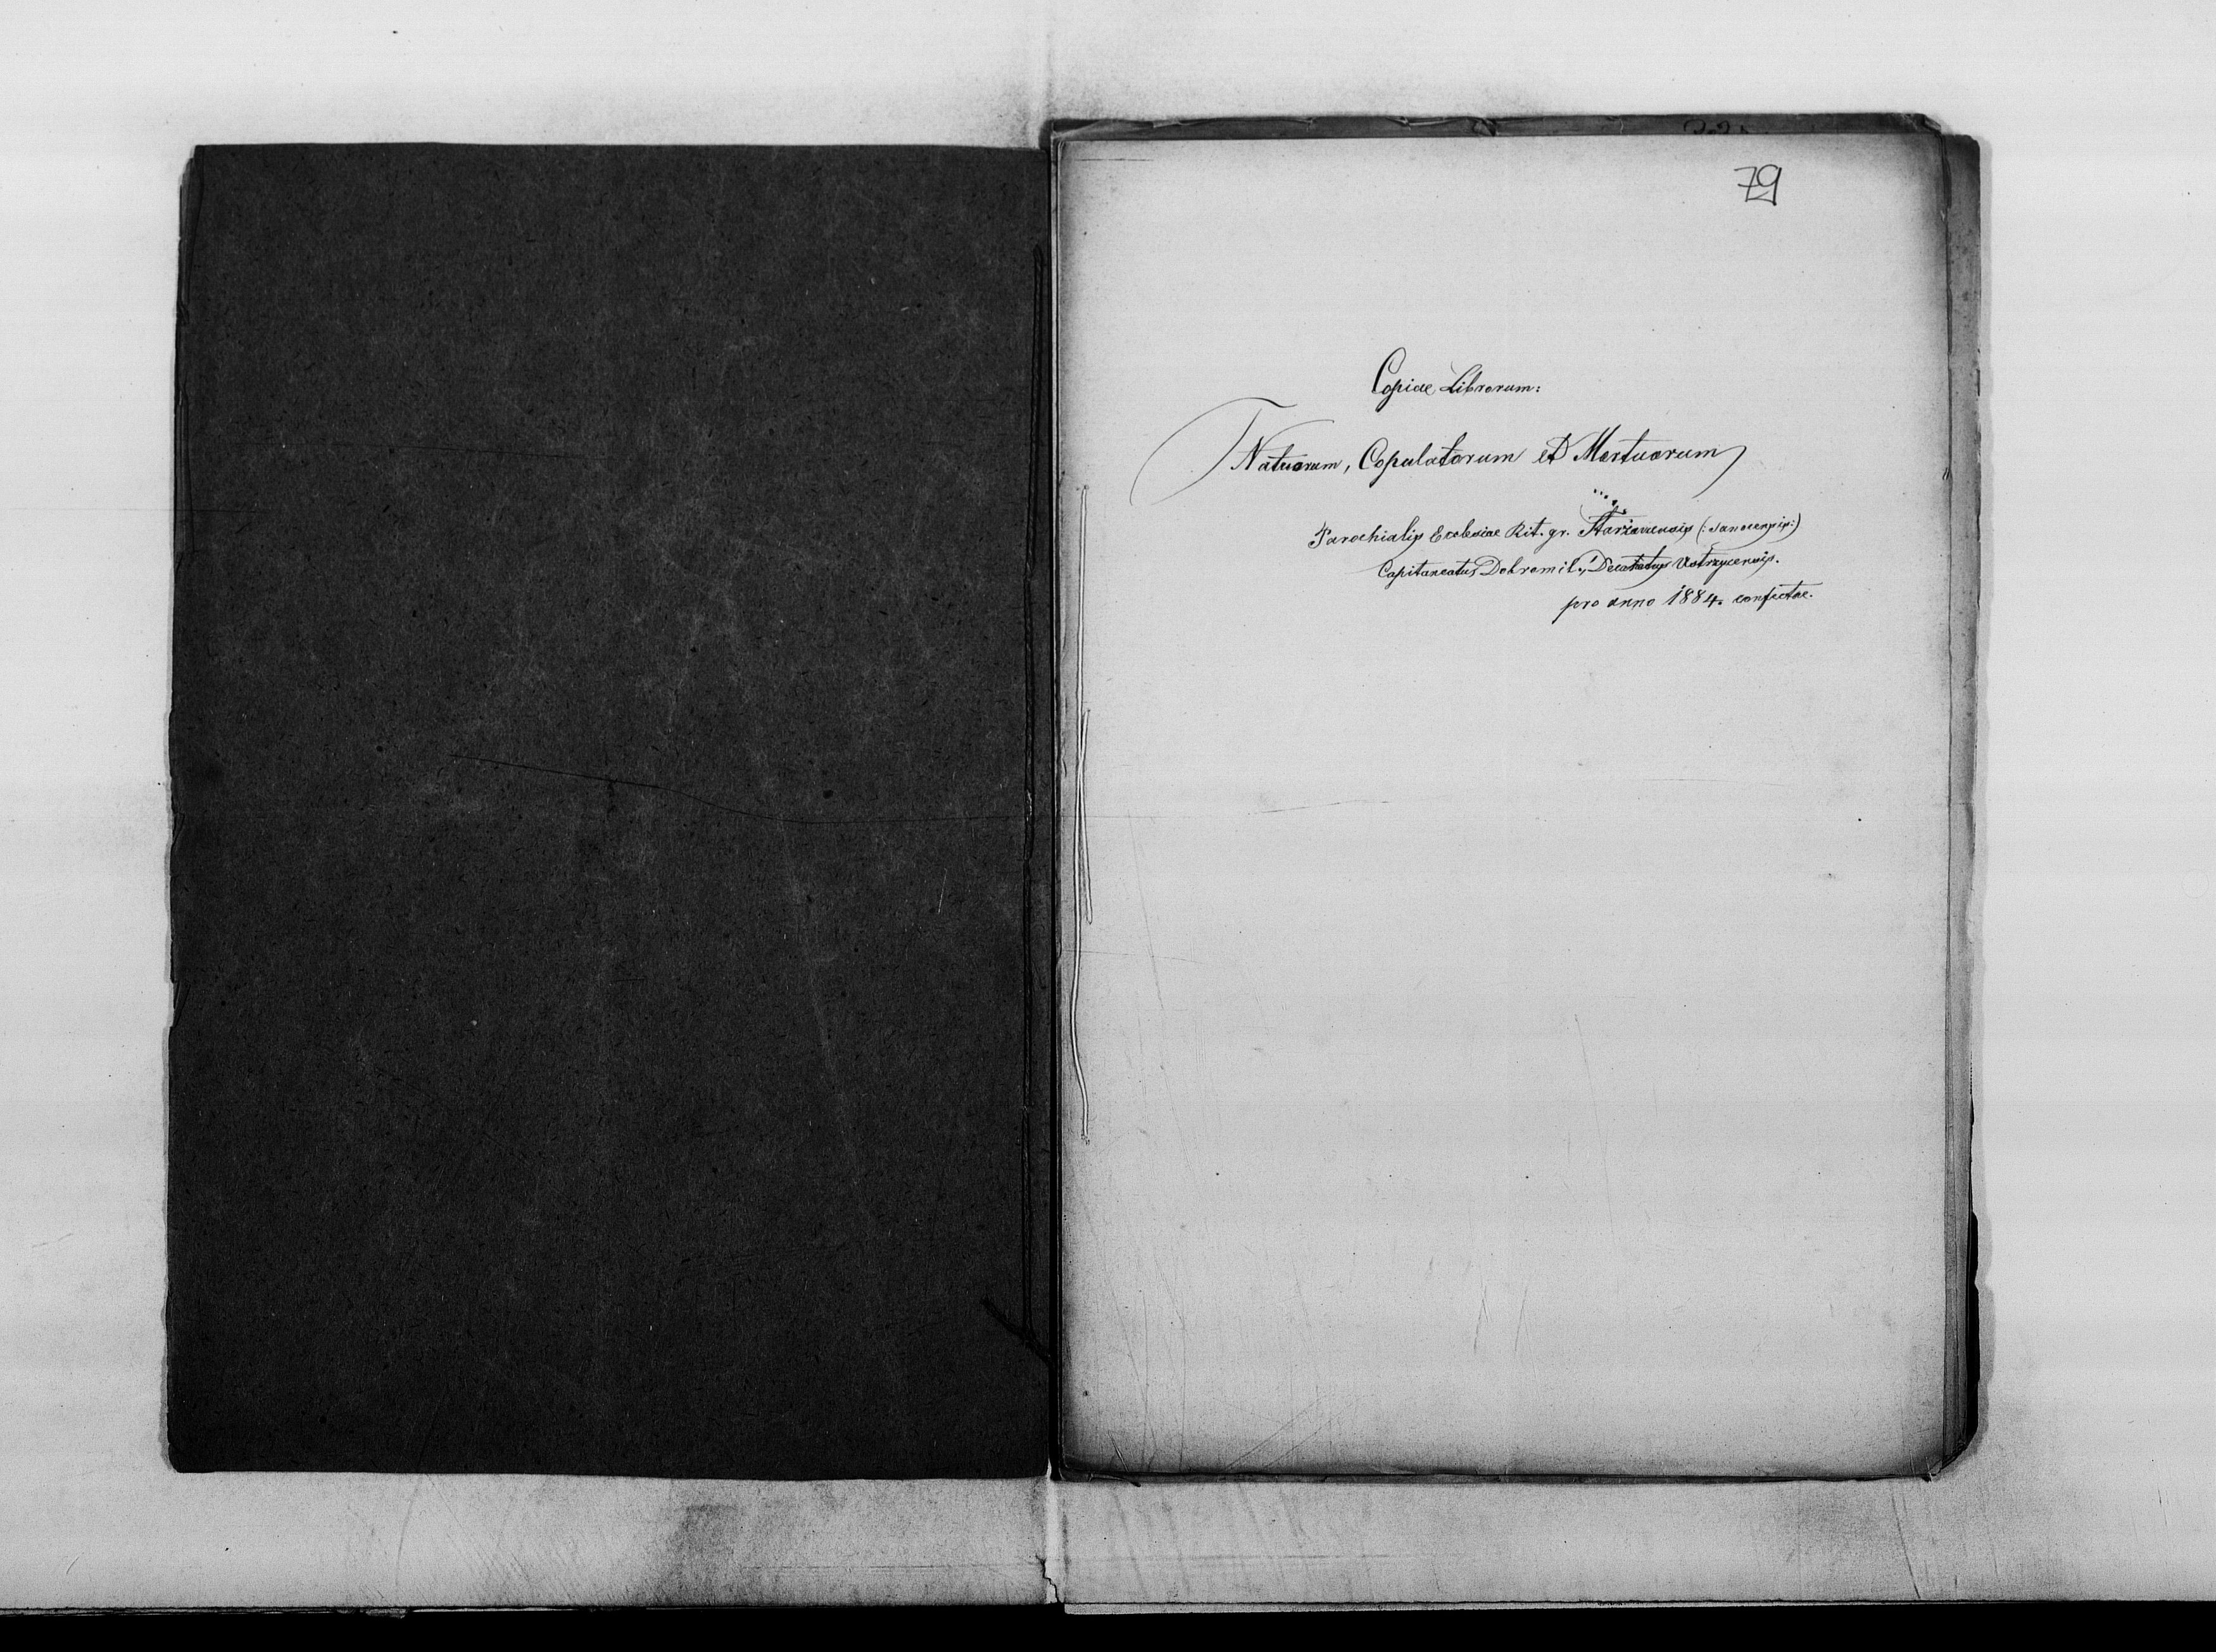 79
Copiae Librorum:
Natuorum, Copulatorum et Mortuorum
Parochialis Ecclesiae Rit. gr. (: Sanocensis :)
Capitaneatus Dobromil., Decanatus Ustrzycensis.
pro anno 1884. confectae.